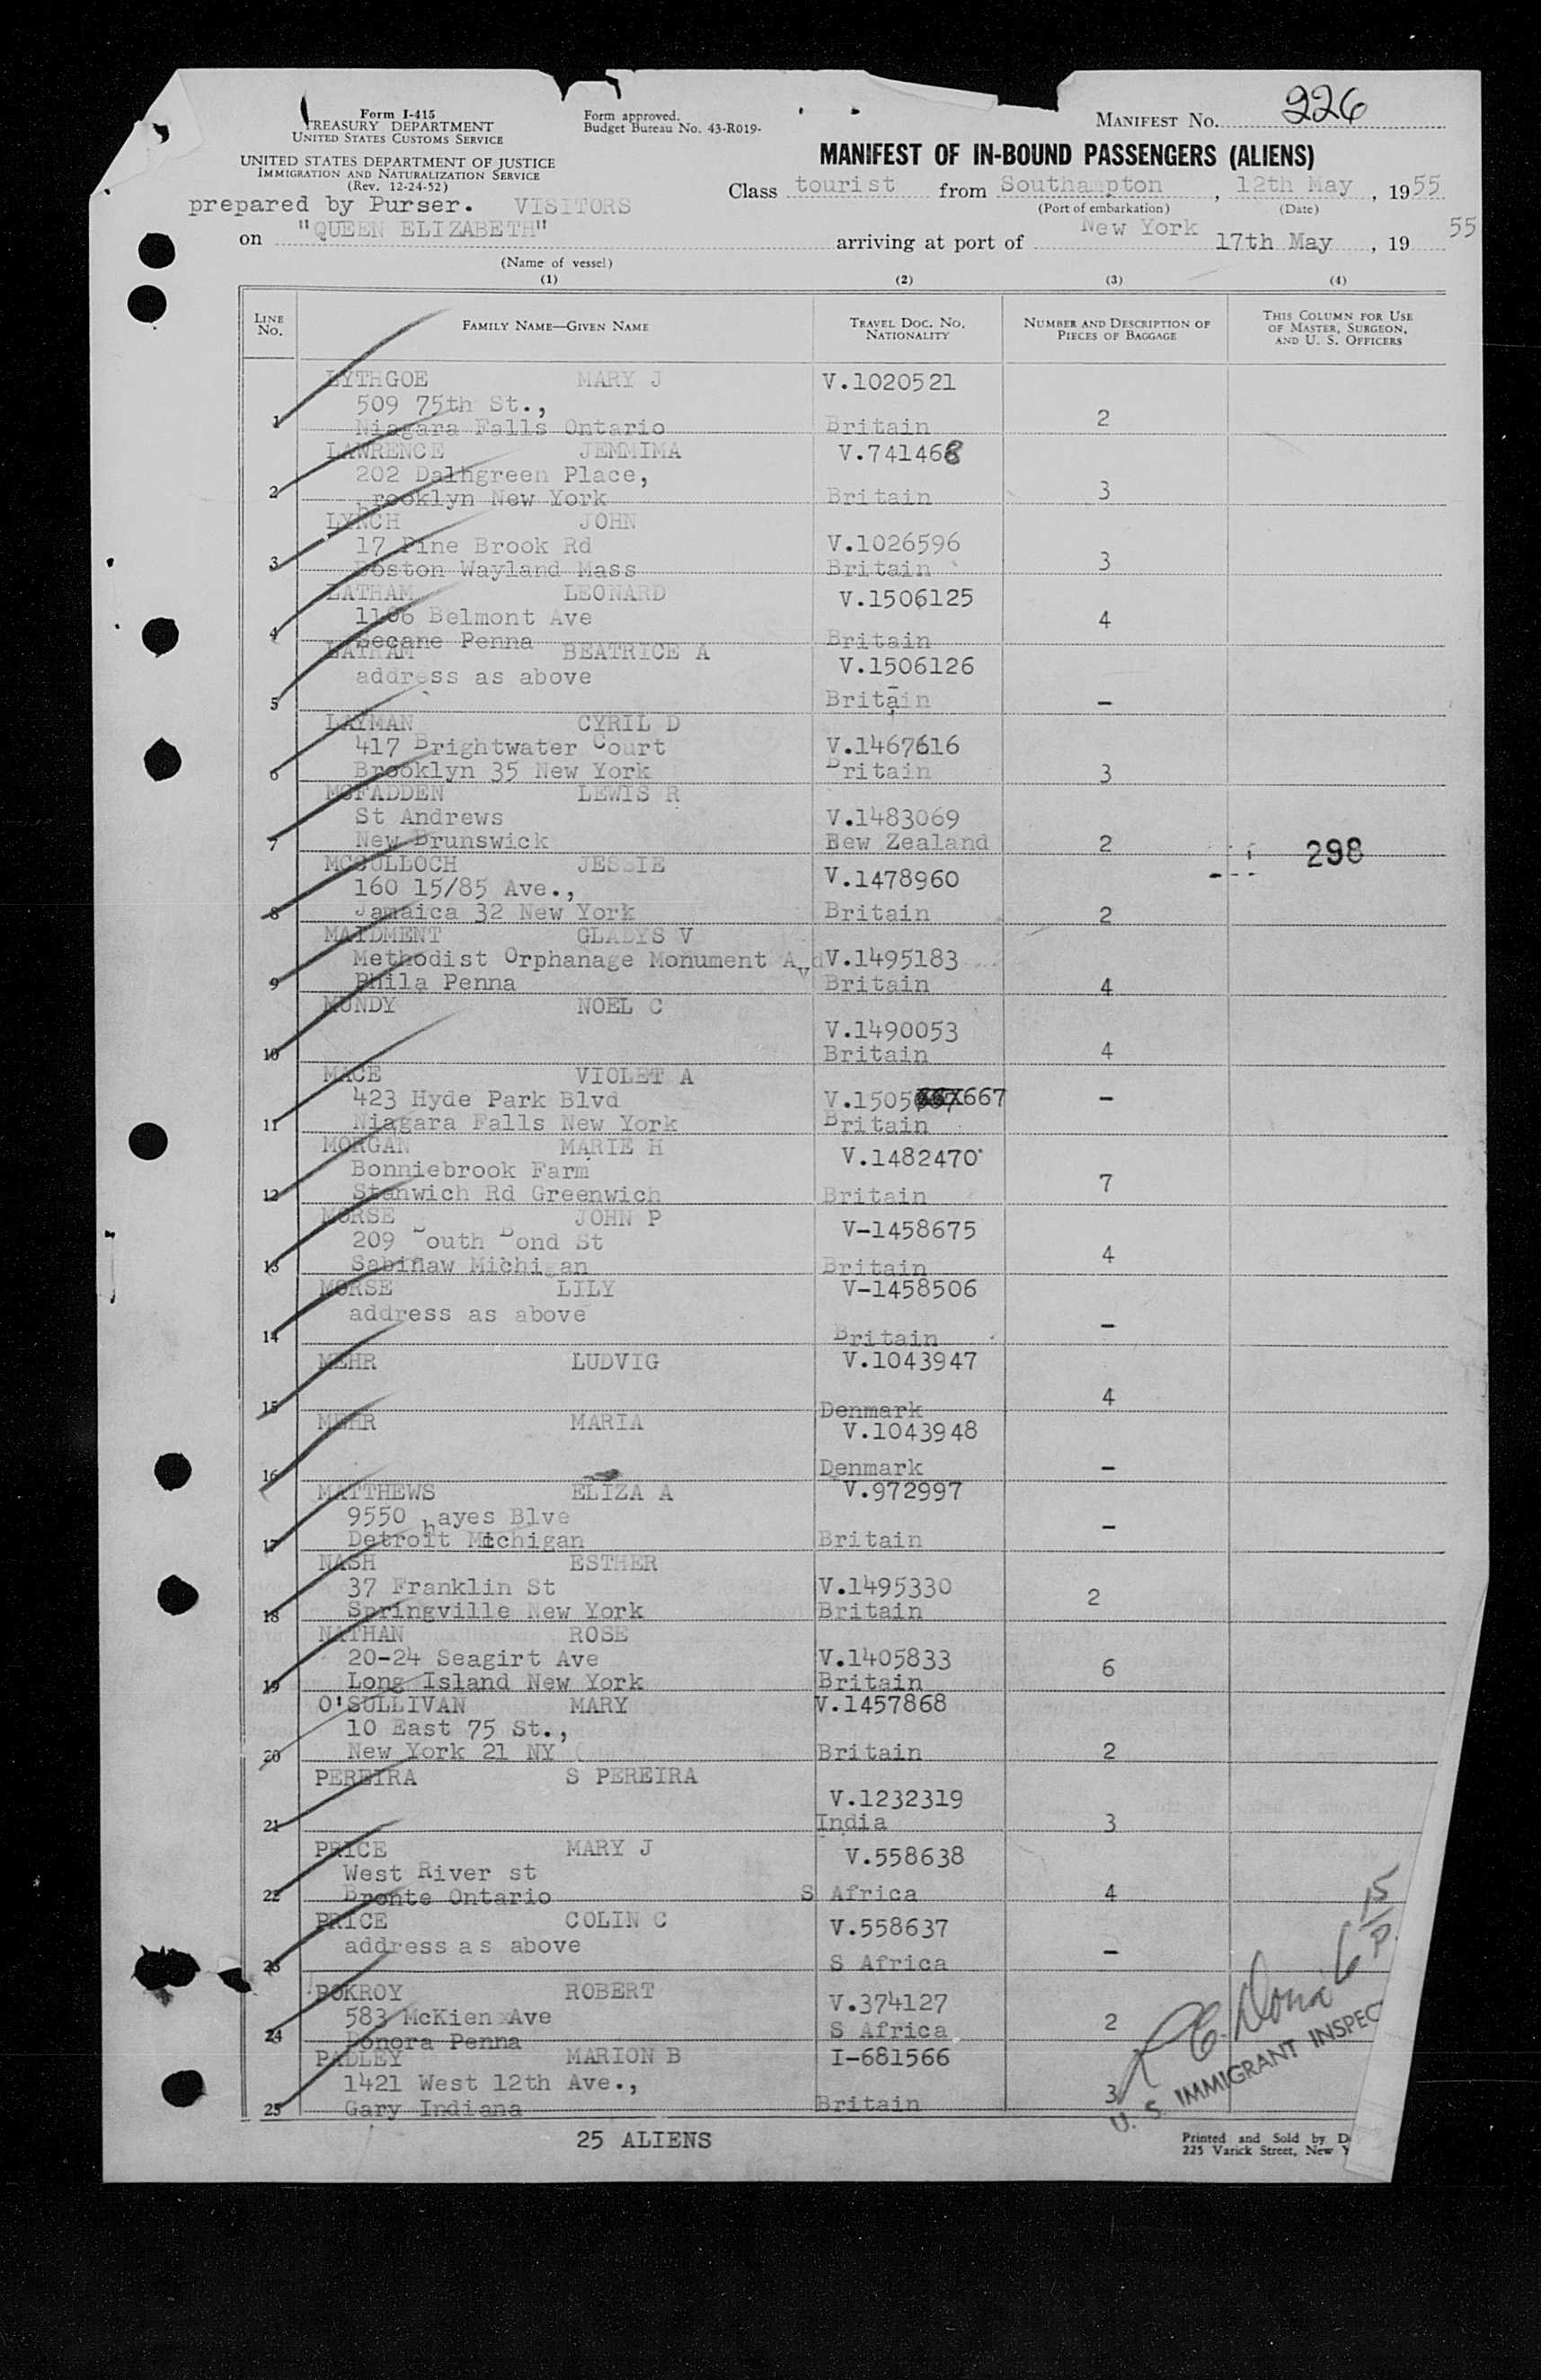 Form I-415
TREASURY DEPARTMENT
UNITED STATES CUSTOMS SERVICE
UNITED STATES DEPARTMENT OF JUSTICE
IMMIGRATION AND NATURALIZATION SERVICE
(Rev. 12-24-52)
Form approved.
Budget Bureau No. 43-R019-
MANIFEST NO. 226
MANIFEST OF IN-BOUND PASSENGERS (ALIENS)
Class tourist from Southampton, 12th May, 1955
(Port of embarkation) (Date)
prepared by Purser. VISITORS
on "QUEEN ELIZABETH" arriving at port of New York 17th May, 19 55
(Name of vessel)
(1) (2) (3) (4)
LINE No. FAMILY NAME—GIVEN NAME TRAVEL DOC. NO. NATIONALITY NUMBER AND DESCRIPTION OF PIECES OF BAGGAGE THIS COLUMN FOR USE OF MASTER, SURGEON, AND U. S. OFFICERS
LYTHGOE MARY J V.1020521
509 75th St.,
1 Niagara Falls Ontario Britain 2
LAWRENCE JEMMIMA V.741468
202 Dalhgreen Place,
2 brooklyn New York Britain 3
LYNCH JOHN
17 Pine Brook Rd V.1026596
3 Boston Wayland Mass Britain 3
LATHAM LEONARD V.1506125
1106 Belmont Ave
4 Secane Penna Britain 4
LATHAM BEATRICE A V.1506126
address as above
5 Britain –
LAYMAN CYRIL D
417 Brightwater Court V.1467616
6 Brooklyn 35 New York Britain 3
MCFADDEN LEWIS R
St Andrews V.1483069
7 New Brunswick New Zealand 2 298
MCCULLOCH JESSIE
160 15/85 Ave., V.1478960
8 Jamaica 32 New York Britain 2
MAIDMENT GLADYS V
Methodist Orphanage Monument Avd V.1495183
9 Phila Penna Britain 4
MUNDY NOEL C
V.1490053
10 Britain 4
MACE VIOLET A
423 Hyde Park Blvd V.1505667 –
11 Niagara Falls New York Britain
MORGAN MARIE H
Bonniebrook Farm V.1482470
12 Stanwich Rd Greenwich Britain 7
MORSE JOHN P
209 South Bond St V-1458675
13 Sabinaw Michigan Britain 4
MORSE LILY V-1458506
address as above
14 Britain –
MEHR LUDVIG V.1043947
15 Denmark 4
MEHR MARIA V.1043948
16 Denmark –
MATTHEWS ELIZA A V.972997
9550 hayes Blve
17 Detroit Michigan Britain –
NASH ESTHER
37 Franklin St V.1495330
18 Springville New York Britain 2
NATHAN ROSE
20-24 Seagirt Ave V.1405833
19 Long Island New York Britain 6
O'SULLIVAN MARY V.1457868
10 East 75 St.,
20 New York 21 NY Britain 2
PEREIRA S PEREIRA
V.1232319
21 India 3
PRICE MARY J V.558638
West River st
22 Bronte Ontario S Africa 4
PRICE COLIN C V.558637
address as above
23 S Africa –
POKROY ROBERT
583 McKien Ave V.374127
24 Donora Penna S Africa 2
PADLEY MARION B I-681566
1421 West 12th Ave.,
25 Gary Indiana Britain 3
U. S. IMMIGRANT INSPEC
25 ALIENS
Printed and Sold by
225 Varick Street, New